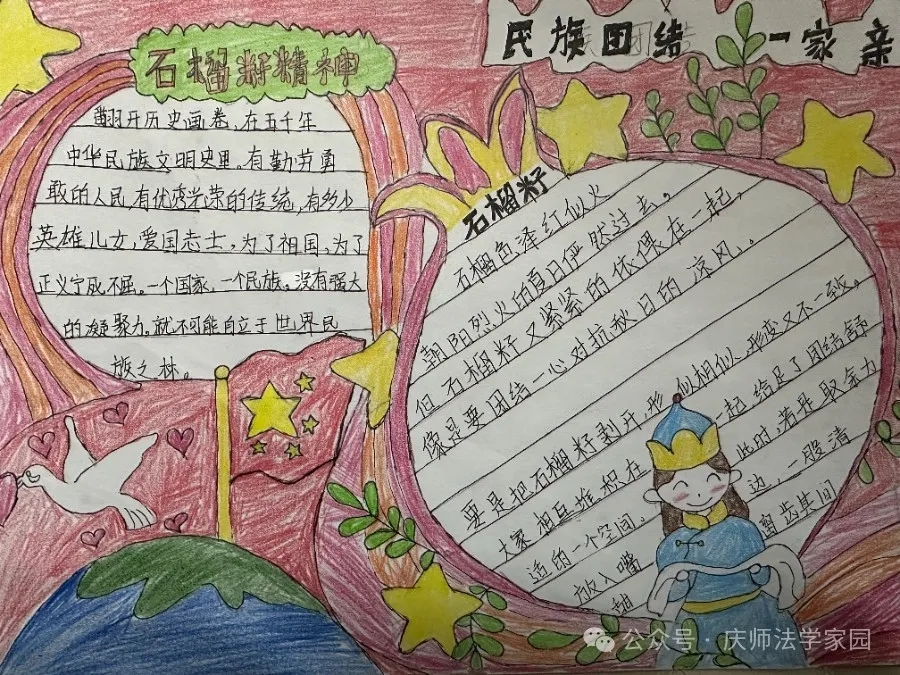 石榴籽精神
翻开历史画卷,在五千年
中华民族文明史里。有勤劳勇
敢的人民,有优秀光荣的传统,有多少
英雄儿女,爱国志士,为了祖国,为了
正义宁死不屈。一个国家,一个民族。没有强大
的凝聚力。就不可能自立于世界民
族之林。
民族团结一家亲
石榴籽
石榴色泽红似火
朝阳烈火的夏日俨然过去,
但石榴籽又紧紧的依偎在一起,
像是要团结一心对抗秋日的凉风、。
要是把石榴籽剥开,形似相似,形变又不一致。
大家相互堆积在一起给足了团结舒
适的一个空间。此时,若是取余力
放入嘴边,一股清
甜 离齿其间
公众号·庆师法学家园